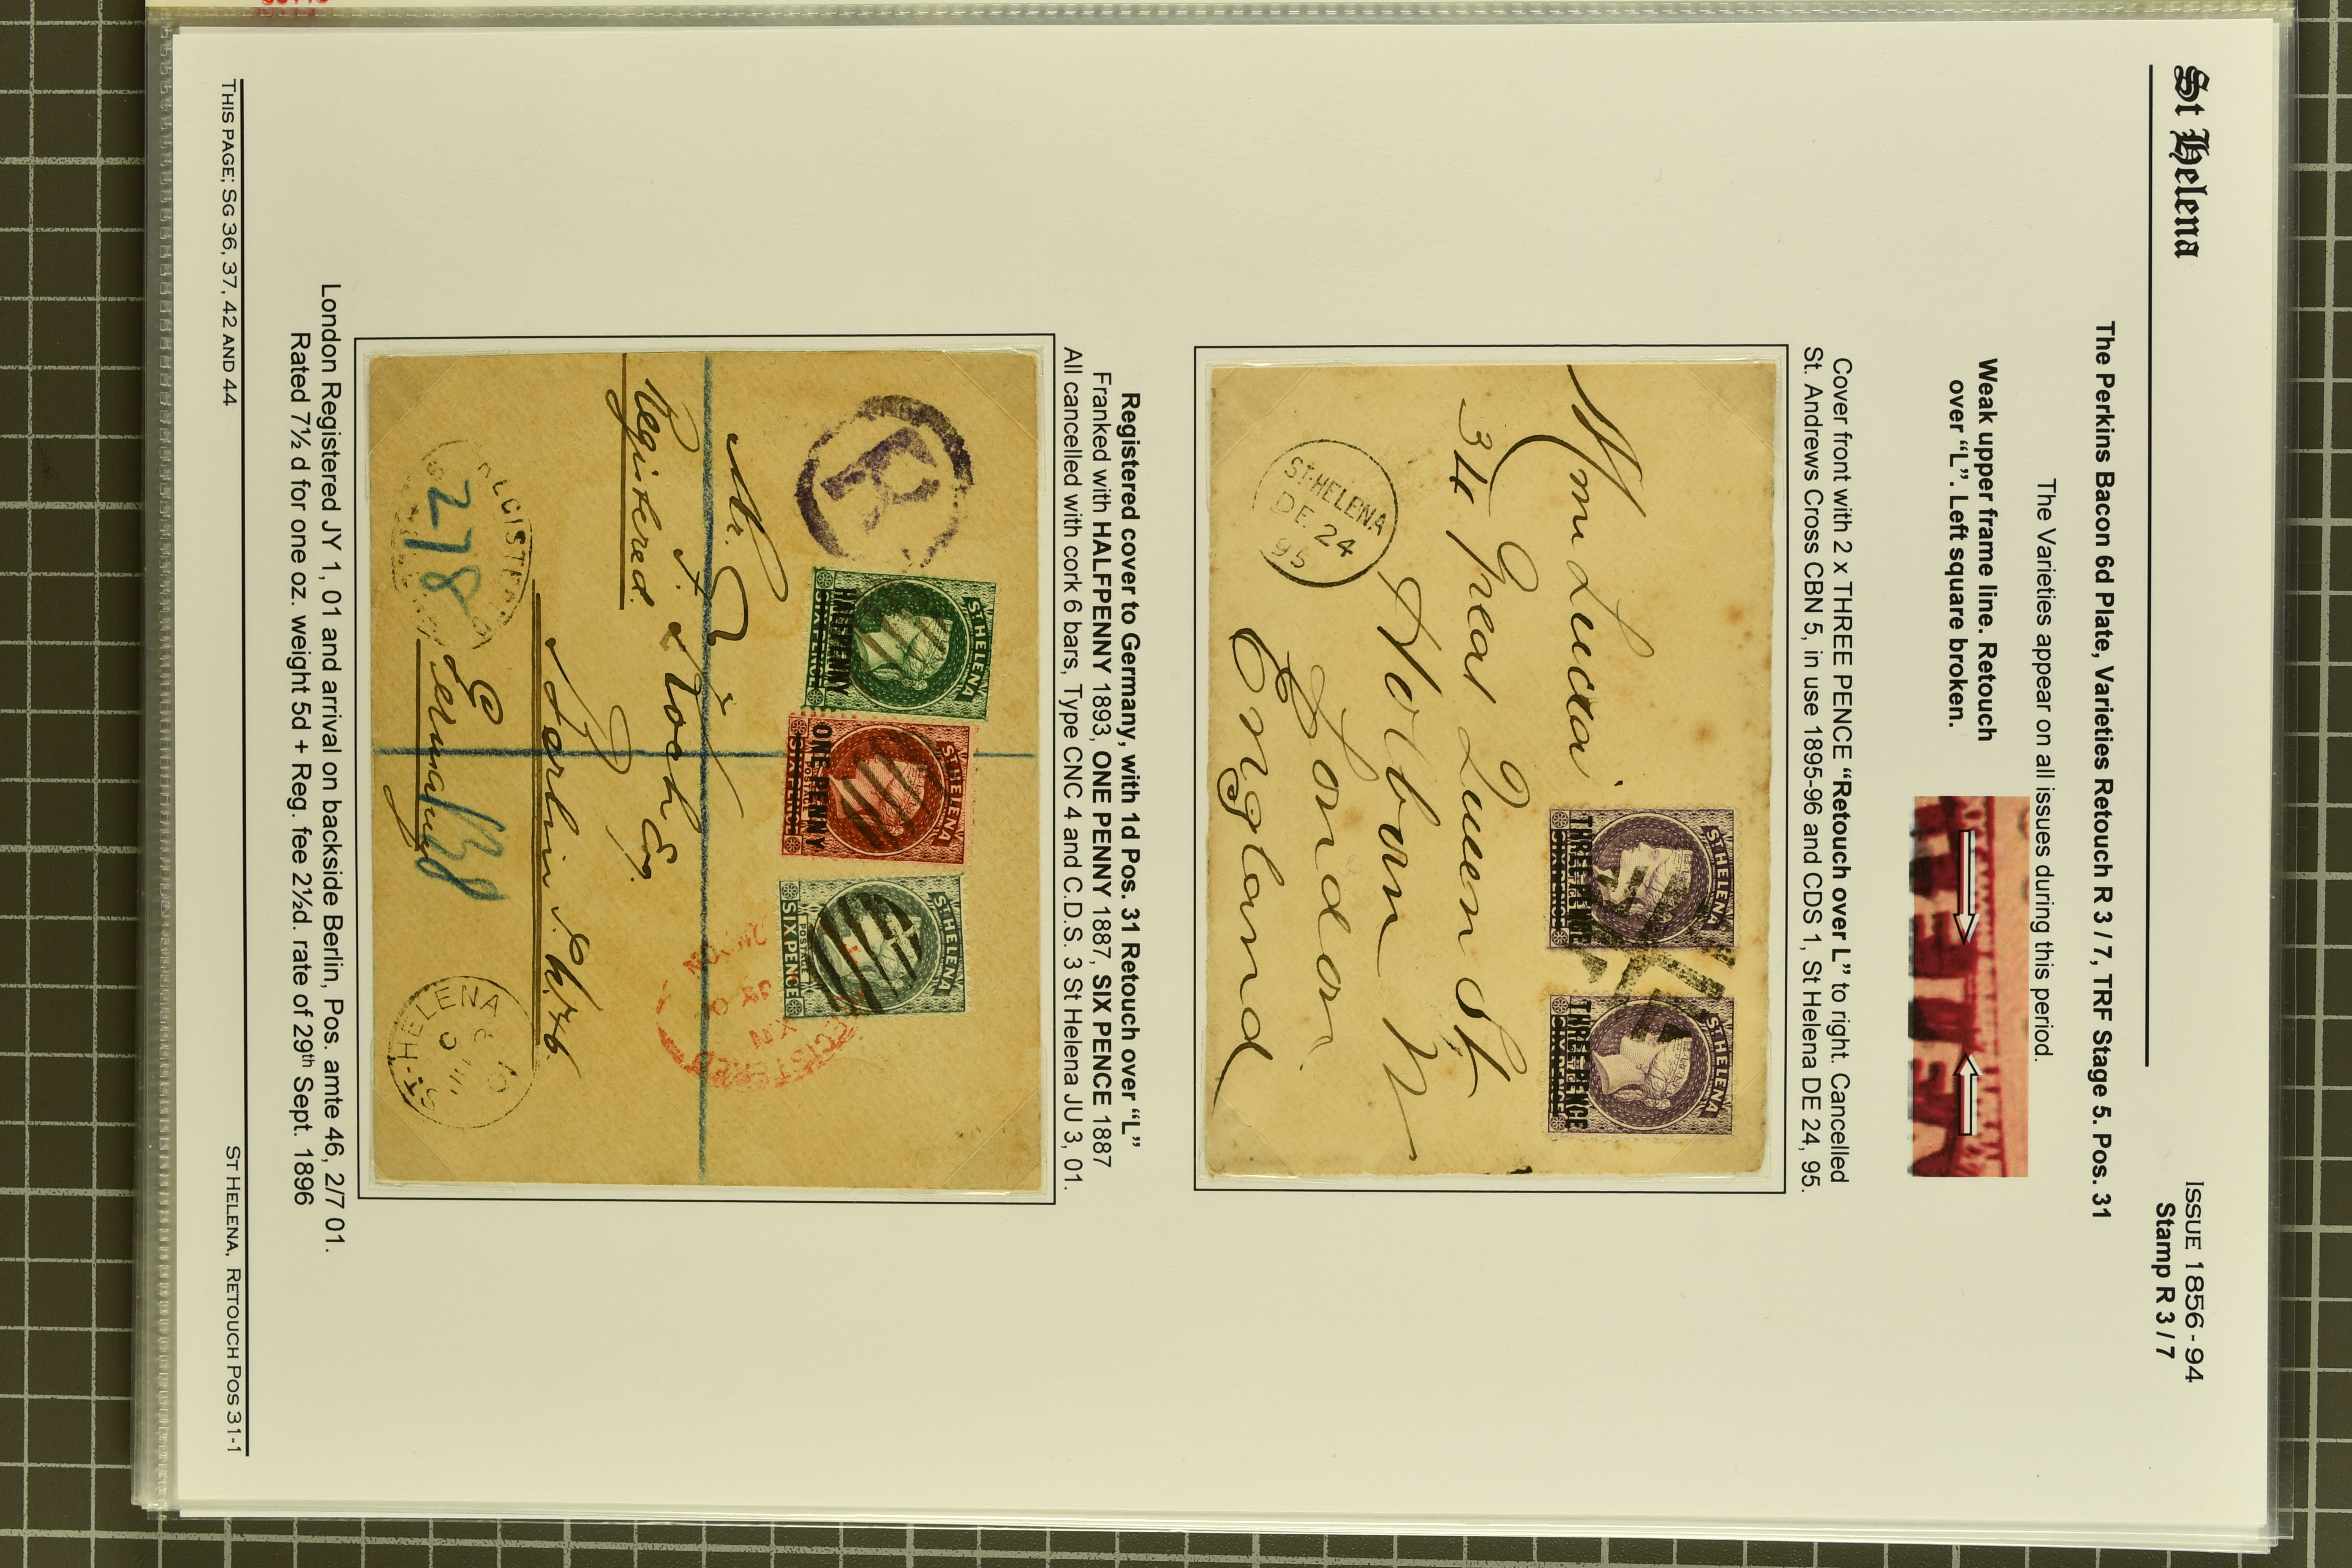 St Helena
ISSUE 1856-94
Stamp R 3 / 7
The Perkins Bacon 6d Plate, Varieties Retouch R 3 / 7, TRF Stage 5. Pos. 31
The Varieties appear on all issues during this period.
Weak upper frame line. Retouch
over “L”. Left square broken.
Cover front with 2 x THREE PENCE “Retouch over L” to right. Cancelled
St. Andrews Cross CBN 5, in use 1895-96 and CDS 1, St Helena DE 24, 95.
ST HELENA
THREE PENCE
SIXPENCE
ST HELENA
THREE PENCE
SIXPENCE
34 Great Queen St
Holborn W
London
England
ST. HELENA
DE 24
95
Registered cover to Germany, with 1d Pos. 31 Retouch over “L”
Franked with HALFPENNY 1893, ONE PENNY 1887, SIX PENCE 1887
All cancelled with cork 6 bars, Type CNC 4 and C.D.S. 3 St Helena JU 3, 01.
R
ST HELENA
HALFPENNY
SIXPENCE
ST HELENA
POSTAGE
ONE PENNY
SIXPENCE
ST HELENA
POSTAGE
SIX PENCE
Koch Esq.
Registered.
Berlin
Germany
278
ST. HELENA
London Registered JY 1, 01 and arrival on backside Berlin, Pos. amte 46, 2/7 01.
Rated 7½ d for one oz. weight 5d + Reg. fee 2½d. rate of 29th Sept. 1896
THIS PAGE; SG 36, 37, 42 AND 44
ST HELENA, RETOUCH POS 31-1